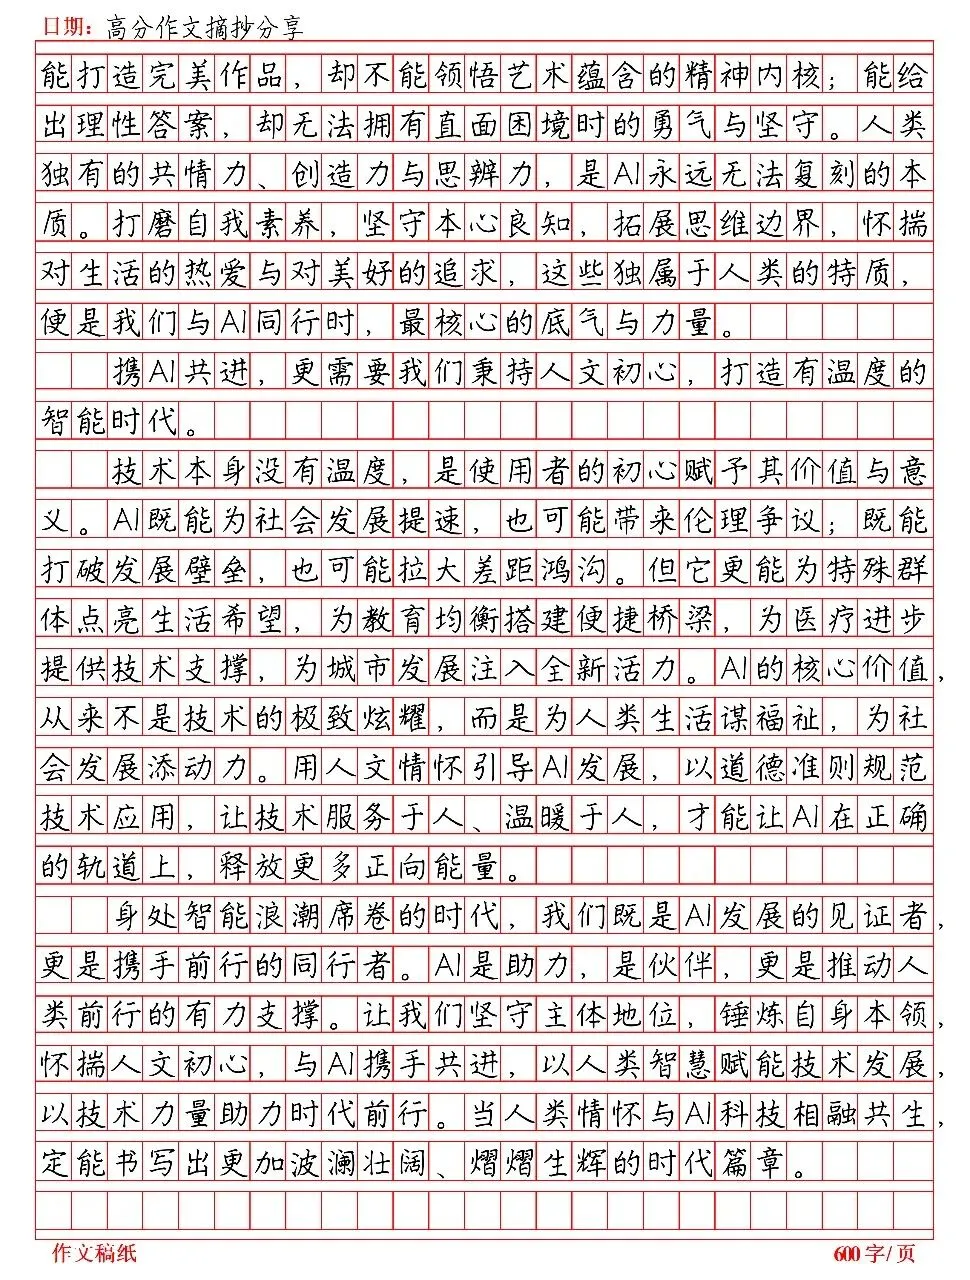 日期：高分作文摘抄分享
能打造完美作品，却不能领悟艺术蕴含的精神内核；能给
出理性答案，却无法拥有直面困境时的勇气与坚守。人类
独有的共情力、创造力与思辨力，是AI永远无法复刻的本
质。打磨自我素养，坚守本心良知，拓展思维边界，怀揣
对生活的热爱与对美好的追求，这些独属于人类的特质，
便是我们与AI同行时，最核心的底气与力量。
携AI共进，更需要我们秉持人文初心，打造有温度的
智能时代。
技术本身没有温度，是使用者的初心赋予其价值与意
义。AI既能为社会发展提速，也可能带来伦理争议；既能
打破发展壁垒，也可能拉大差距鸿沟。但它更能为特殊群
体点亮生活希望，为教育均衡搭建便捷桥梁，为医疗进步
提供技术支撑，为城市发展注入全新活力。AI的核心价值，
从来不是技术的极致炫耀，而是为人类生活谋福祉，为社
会发展添动力。用人文情怀引导AI发展，以道德准则规范
技术应用，让技术服务于人、温暖于人，才能让AI在正确
的轨道上，释放更多正向能量。
身处智能浪潮席卷的时代，我们既是AI发展的见证者，
更是携手前行的同行者。AI是助力，是伙伴，更是推动人
类前行的有力支撑。让我们坚守主体地位，锤炼自身本领，
怀揣人文初心，与AI携手共进，以人类智慧赋能技术发展，
以技术力量助力时代前行。当人类情怀与AI科技相融共生，
定能书写出更加波澜壮阔、熠熠生辉的时代篇章。
作文稿纸 600字/页